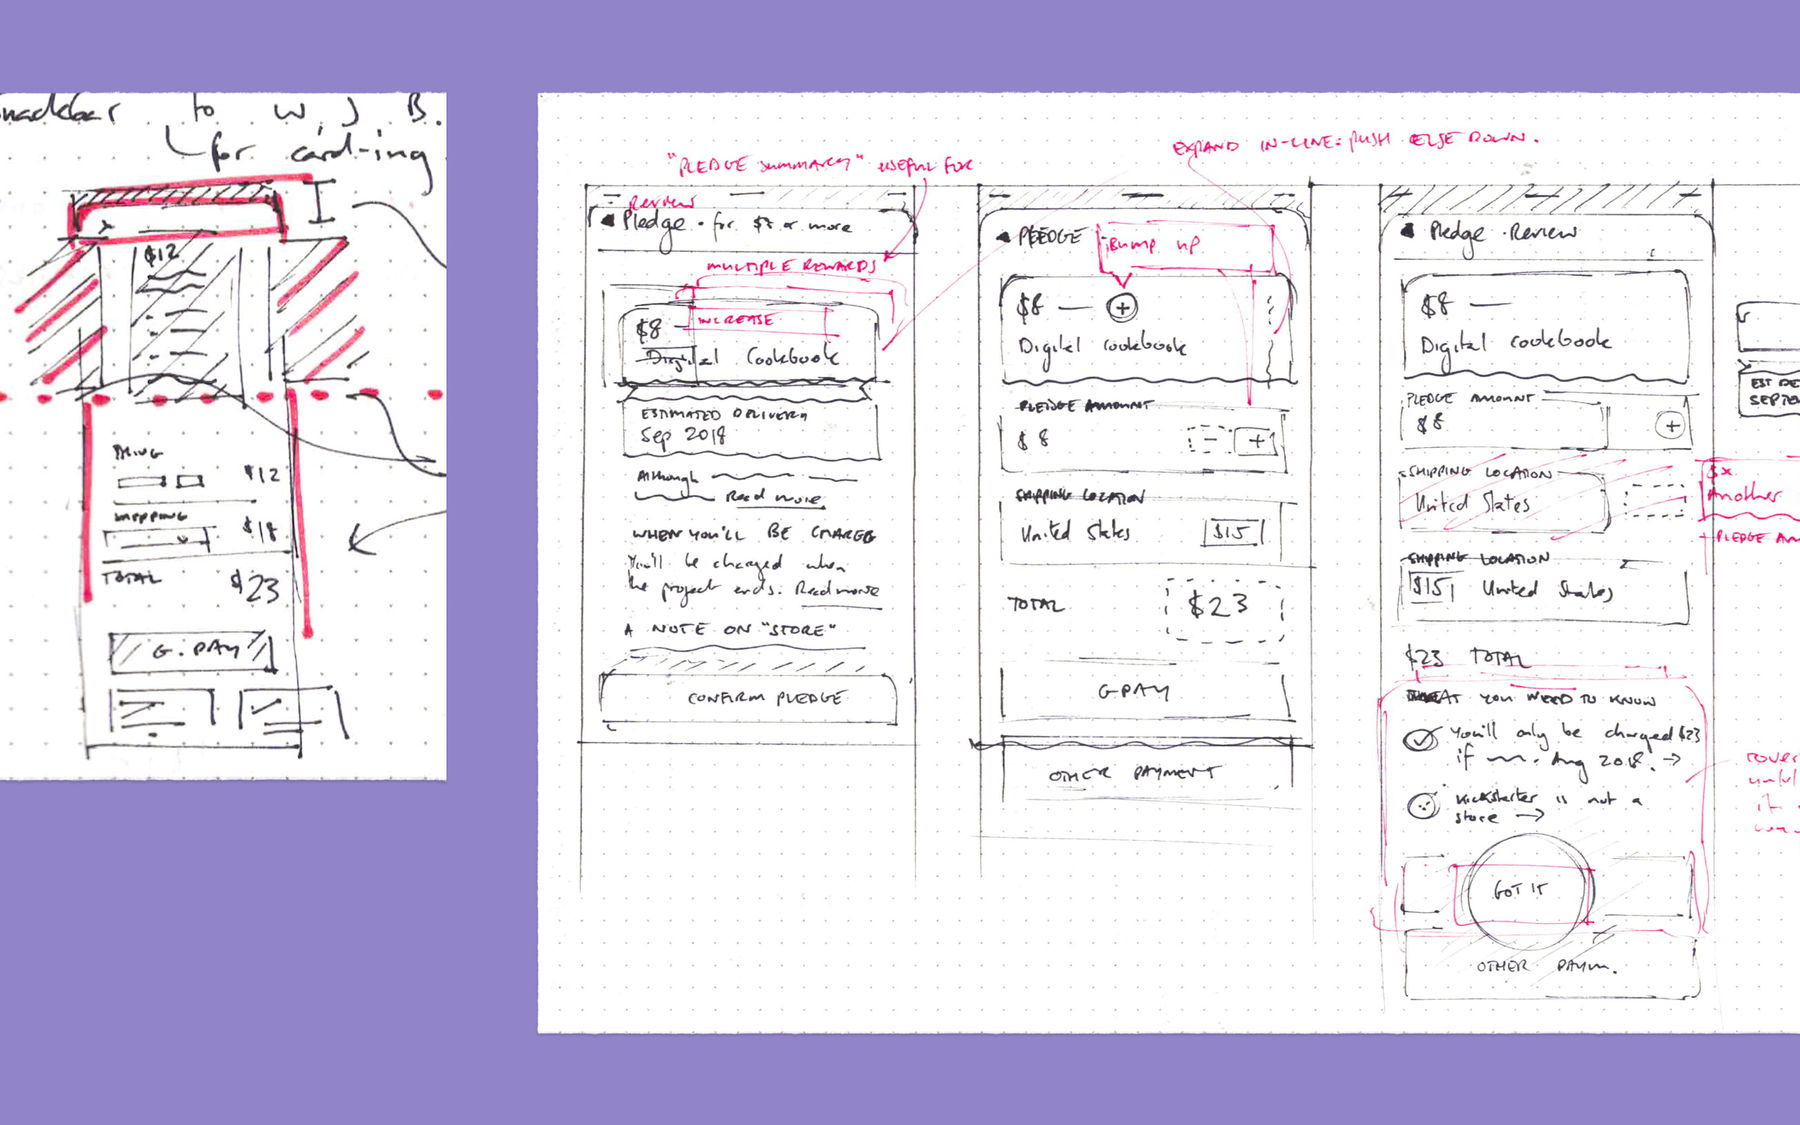 to W, J B.
for card-ing
$12
THING
$12
SHIPPING
$18
TOTAL
$23
G. PAY
"PLEDGE SUMMARY" USEFUL FOR
Review
Pledge · for $7 or more
MULTIPLE REWARDS
$8
INCREASE
Digital Cookbook
ESTIMATED DELIVERY
Sep 2018
Although
Read more
WHEN YOU'LL BE CHARGED
You'll be charged when
the project ends. Read more
A NOTE ON "STORE"
CONFIRM PLEDGE
EXPAND IN-LINE: PUSH ELSE DOWN.
PLEDGE
Bump up
$8 +
Digital cookbook
PLEDGE AMOUNT
$8 - +
SHIPPING LOCATION
United States $15
TOTAL $23
G-PAY
OTHER PAYMENT
Pledge · Review
$8
Digital cookbook
PLEDGE AMOUNT
$8 +
SHIPPING LOCATION
United States
SHIPPING LOCATION
$15 United States
$23 TOTAL
WHAT YOU NEED TO KNOW
You'll only be charged $23
if Aug 2018. →
Kickstarter is not a
store →
GOT IT
OTHER PAYM.
EST DE
SEPTE
$x
Another
+ PLEDGE AM